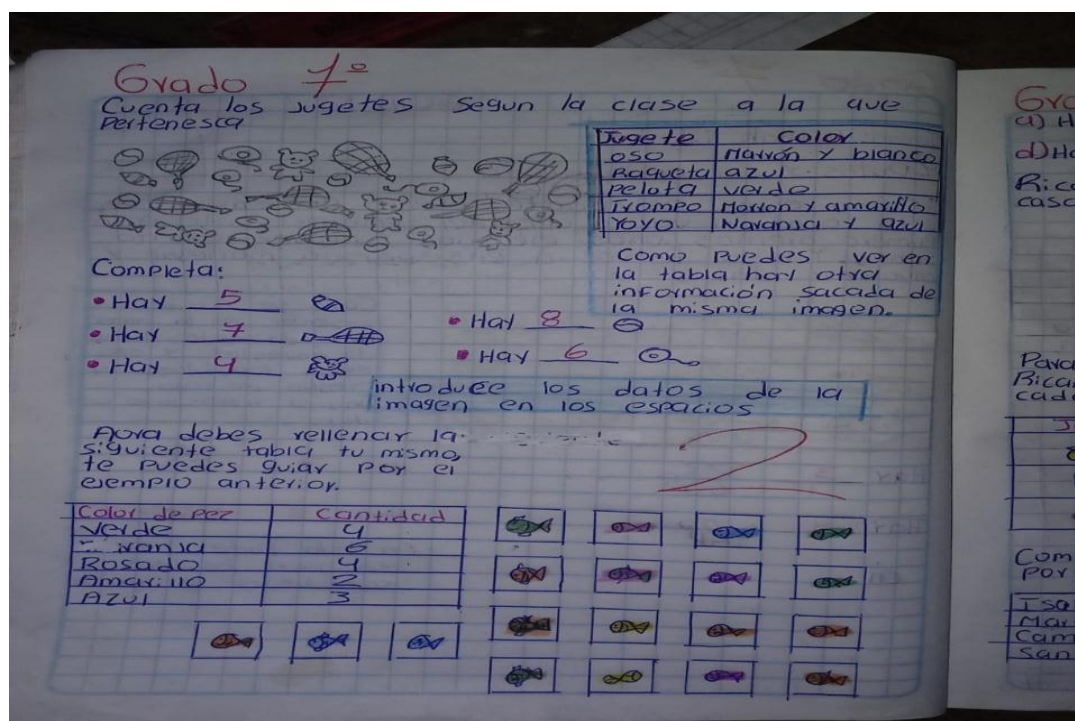 Grado 1º
Cuenta los Jugetes Segun la clase a la que
Pertenesca
Jugete Color
oso Marrón y blanco
Raqueta azul
Pelota verde
Trompo Morron y amarillo
Yoyo Naranja y azul
Como Puedes ver en
la tabla hay otra
información sacada de
la misma imagen.
Completa:
• Hay 5
• Hay 7
• Hay 4
• Hay 8
• Hay 6
introduce los datos de la
imagen en los espacios
Aora debes rellenar la
siguiente tabla tu mismo,
te puedes guiar por el
ejemplo anterior.
2
Color de pez Cantidad
Verde 4
6
Rosado 4
Amarillo 2
Azul 3
a) H
d) Ha
Rica
casa
Para
Rica
cada
Com
por
Isa
Mar
Cam
San